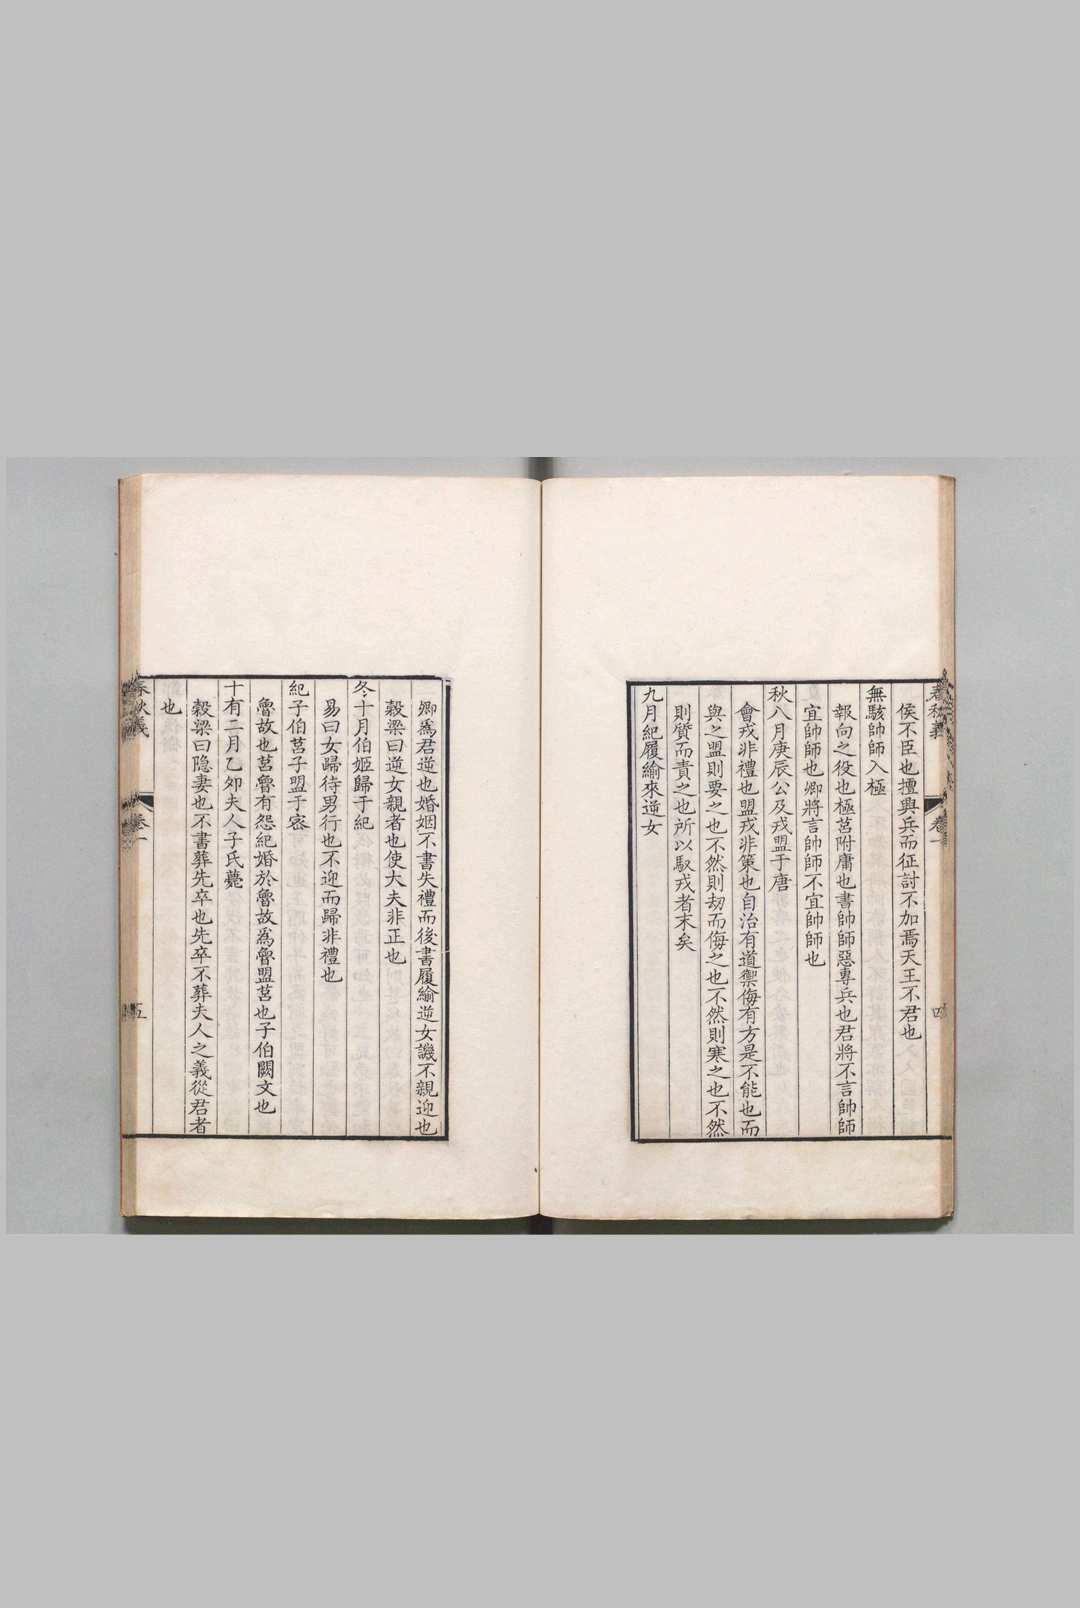 春秋義
卷一
四
侯不臣也擅興兵而征討不加焉天王不君也
無駭帥師入極
報向之役也極莒附庸也書帥師惡專兵也君將不言帥師
宜帥師也卿將言帥師不宜帥師也
秋八月庚辰公及戎盟于唐
會戎非禮也盟戎非策也自治有道禦侮有方是不能也而
與之盟則要之也不然則劫而侮之也不然則寒之也不然
則質而責之也所以馭戎者末矣
九月紀履緰來逆女
卿爲君逆也婚姻不書失禮而後書履緰逆女譏不親迎也
穀梁曰逆女親者也使大夫非正也
冬十月伯姬歸于紀
易曰女歸待男行也不迎而歸非禮也
紀子伯莒子盟于宻
魯故也莒魯有怨紀婚於魯故爲魯盟莒也子伯闕文也
十有二月乙夘夫人子氏薨
穀梁曰隐妻也不書葬先卒也先卒不葬夫人之義從君者
也
春秋義
卷一
五